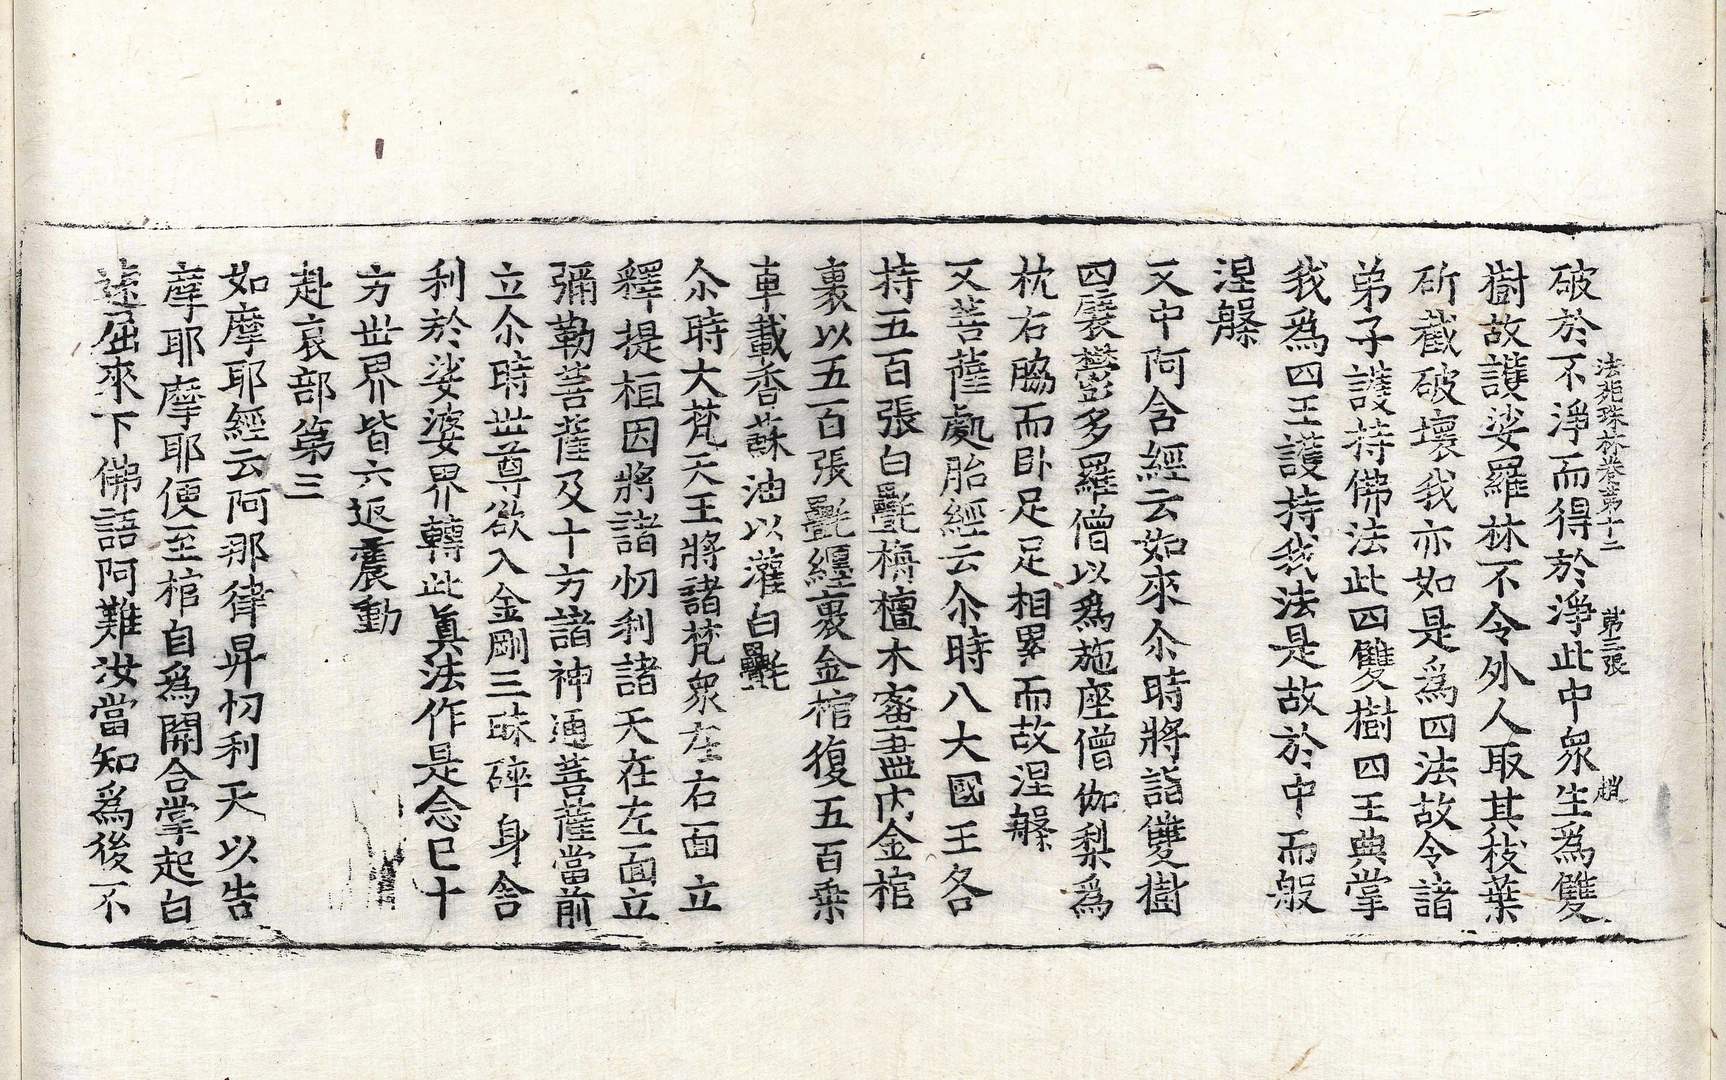 法苑珠林卷第十二 第三張 趙
破於不淨而得於淨此中衆生爲雙
樹故護娑羅林不令外人取其枝葉
斫截破壞我亦如是爲四法故令諸
弟子護持佛法此四雙樹四王典掌
我爲四王護持我法是故於中而般
涅槃
又中阿含經云如來尒時將詣雙樹
四襞欝多羅僧以爲施座僧伽梨爲
枕右脇而卧足足相累而故涅槃
又菩薩處胎經云尒時八大國王各
持五百張白㲲栴檀木蜜盡内金棺
裹以五百張㲲纏裹金棺復五百乗
車載香蘇油以灌白㲲
尒時大梵天王將諸梵衆在右面立
釋提桓因將諸忉利諸天在左面立
彌勒菩薩及十方諸神通菩薩當前
立尒時世尊欲入金剛三昧碎身舍
利於娑婆界轉此眞法作是念已十
方世界皆六返震動
赴哀部第三
如摩耶經云阿那律昇忉利天以告
摩耶摩耶便至棺自爲開合掌起白
遠屈來下佛語阿難汝當知爲後不